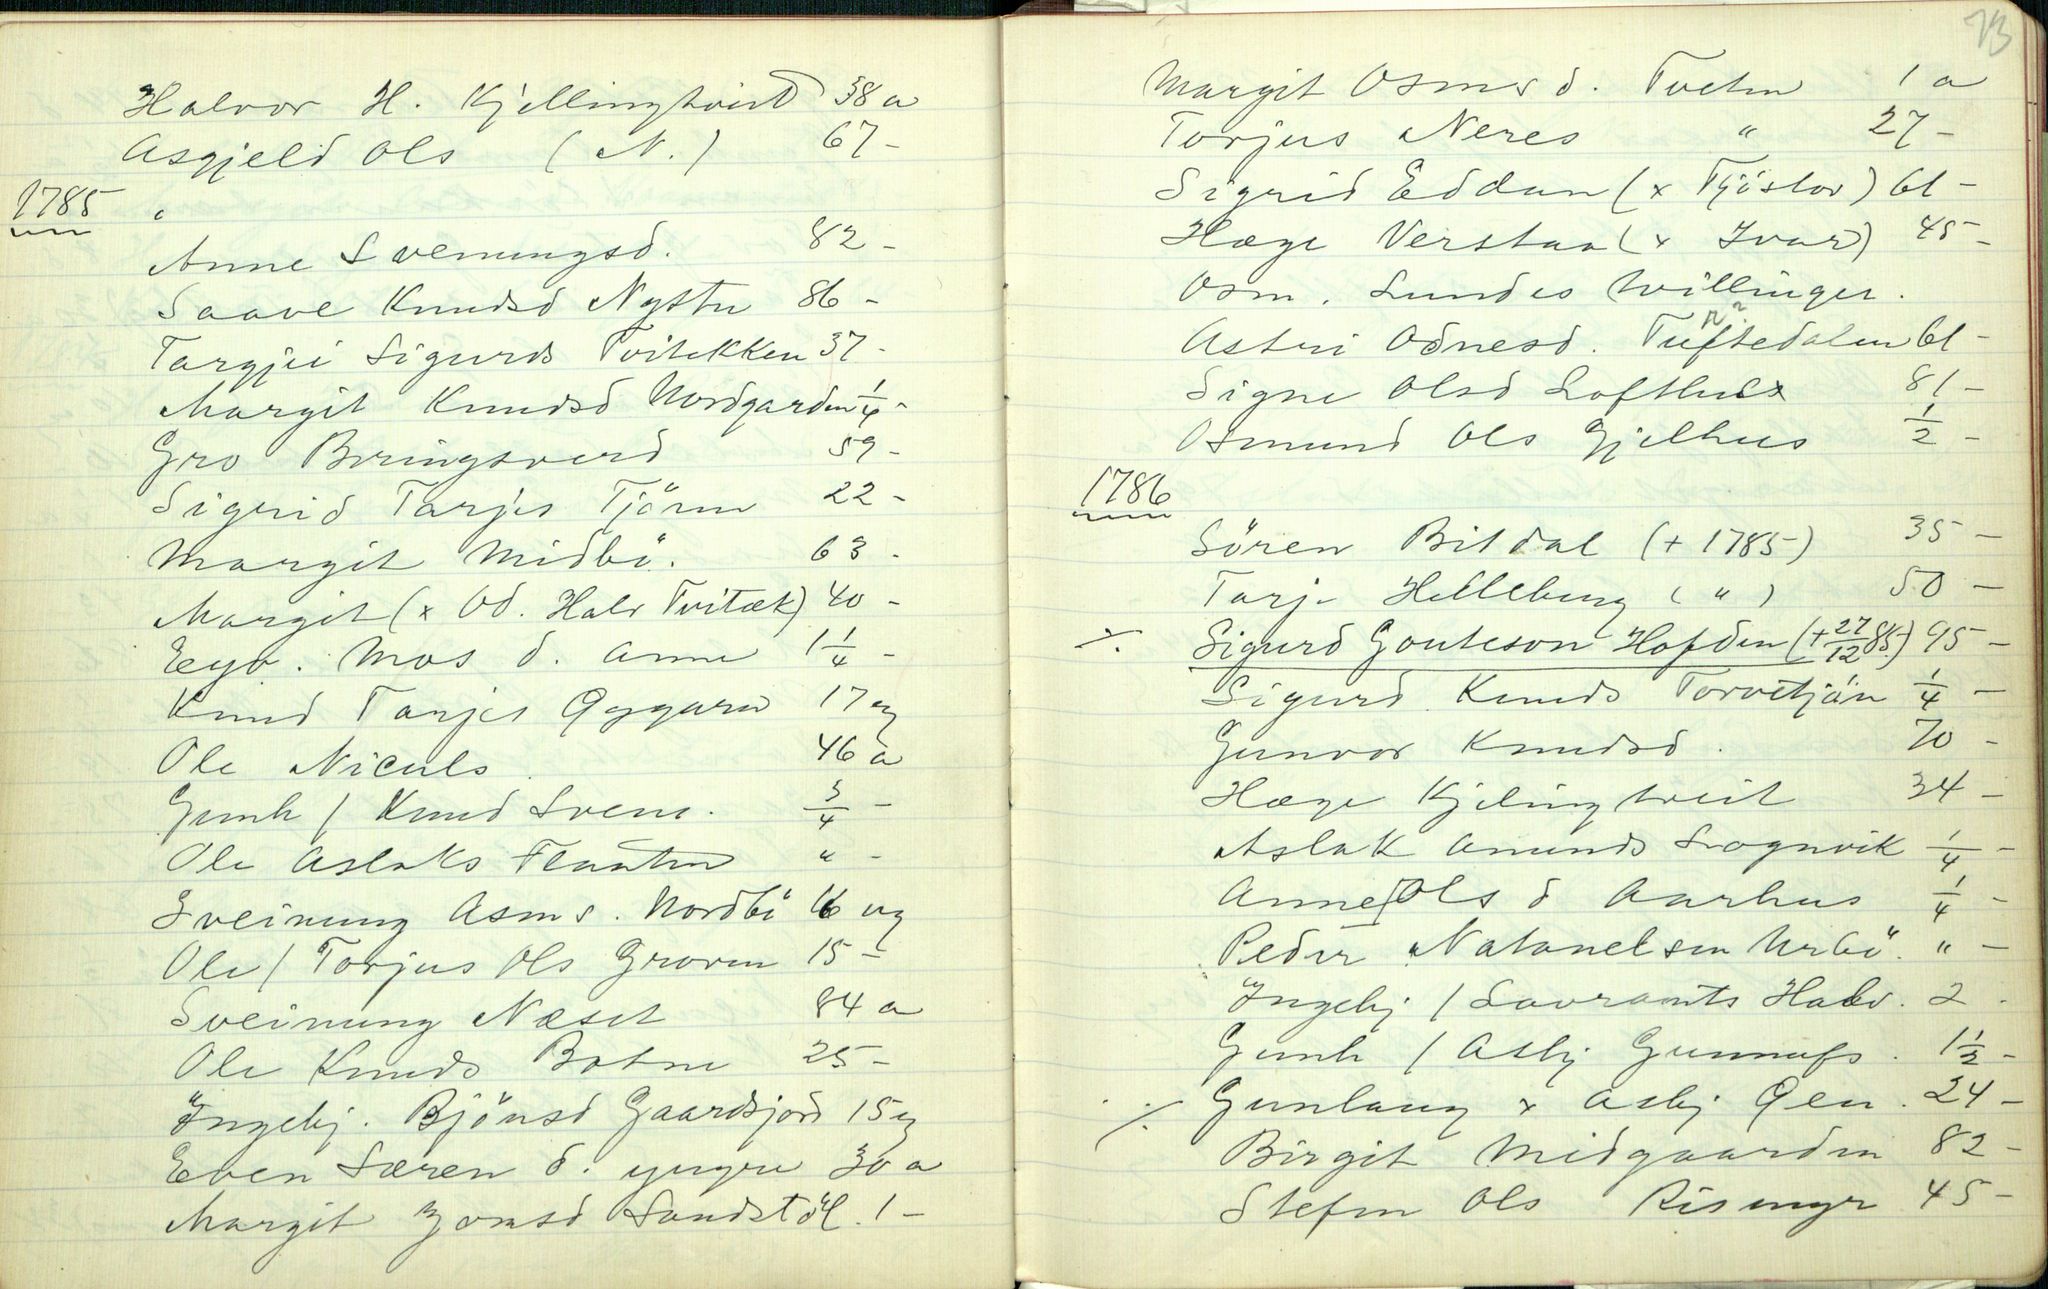 Halvor H. Kjellingtveit 38 a
Asgjeld Ols (N.) 67 -
1785
Anne Sveningsd. 82 -
Saave Knudsd Nystu 86 -
Targjei Sigurds Tvitekken 37 -
Margit Knudsd Nordgarden 1/4 -
Gro Bringsverd 59 -
Sigrid Tarjes Tjönn 22 -
Margit Midbö. 63 -
Margit (x Od. Halv Tvitæk) 40 -
Eyv. Mos d. Anne 1 1/4 -
Knud Tarjes 17
Ole Niculs 46 a
Gunh / Knud Svens. 3/4 -
Ole Aslaks Flaaten " -
Sveinung Asms. Nordbö 16
Ole / Torjus Ols Groven 15 -
Sveinung Næset 84 a
Ole Knuds Botne 25 -
Ingebj. Bjönsd Gaardsjord 15
Even Særen d. yngre 30 a
Margit Jonsd Sandstöl. 1 -
73
Margit Osmsd. Tveten 1 a
Torjus Neres " 27 -
Sigrid Eddan (x Tjöstov) 61 -
Hæge Verstaa (x Ivar) 45 -
Osm. Lundes tvillinger.
Astri Odnesd. Tuftedalen 61 -
Signe Olsd Lofthus 81 -
Osmund Ols Gjelhus 1/2 -
1786
Sören Bitdal (+ 1785) 35 -
Tarje Helleberg ( " ) 50 -
Sigurd Gouteson Hofden (+ 27/12 85) 95 -
Sigurd Knuds Torvetjön 1/4 -
Gunvor Knudsd. 70 -
Hæge Kjelingtveit 34 -
Aslak Amunds Sognvik 1/4 -
Anne / Ols d Aarhus 1/4 -
Peder Natanelsen Urbö. " -
Ingebj / Lavrants Halv. 2 -
Gunh / Asbj Gunnufs. 1 1/2 -
Gunlaug x Asbj Gen. 24 -
Birgit Midgaarden 82 -
Stefen Ols Rismyr 45 -